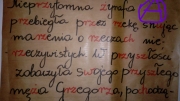 Nieprzytomna żyrafa
przebiegła przez rzekę śniąc
marzenia o rzeczach nie-
rzeczywistych. W przyszłości
zobaczyła swojego przyszłego
męża Grzegorza, pochodzą-